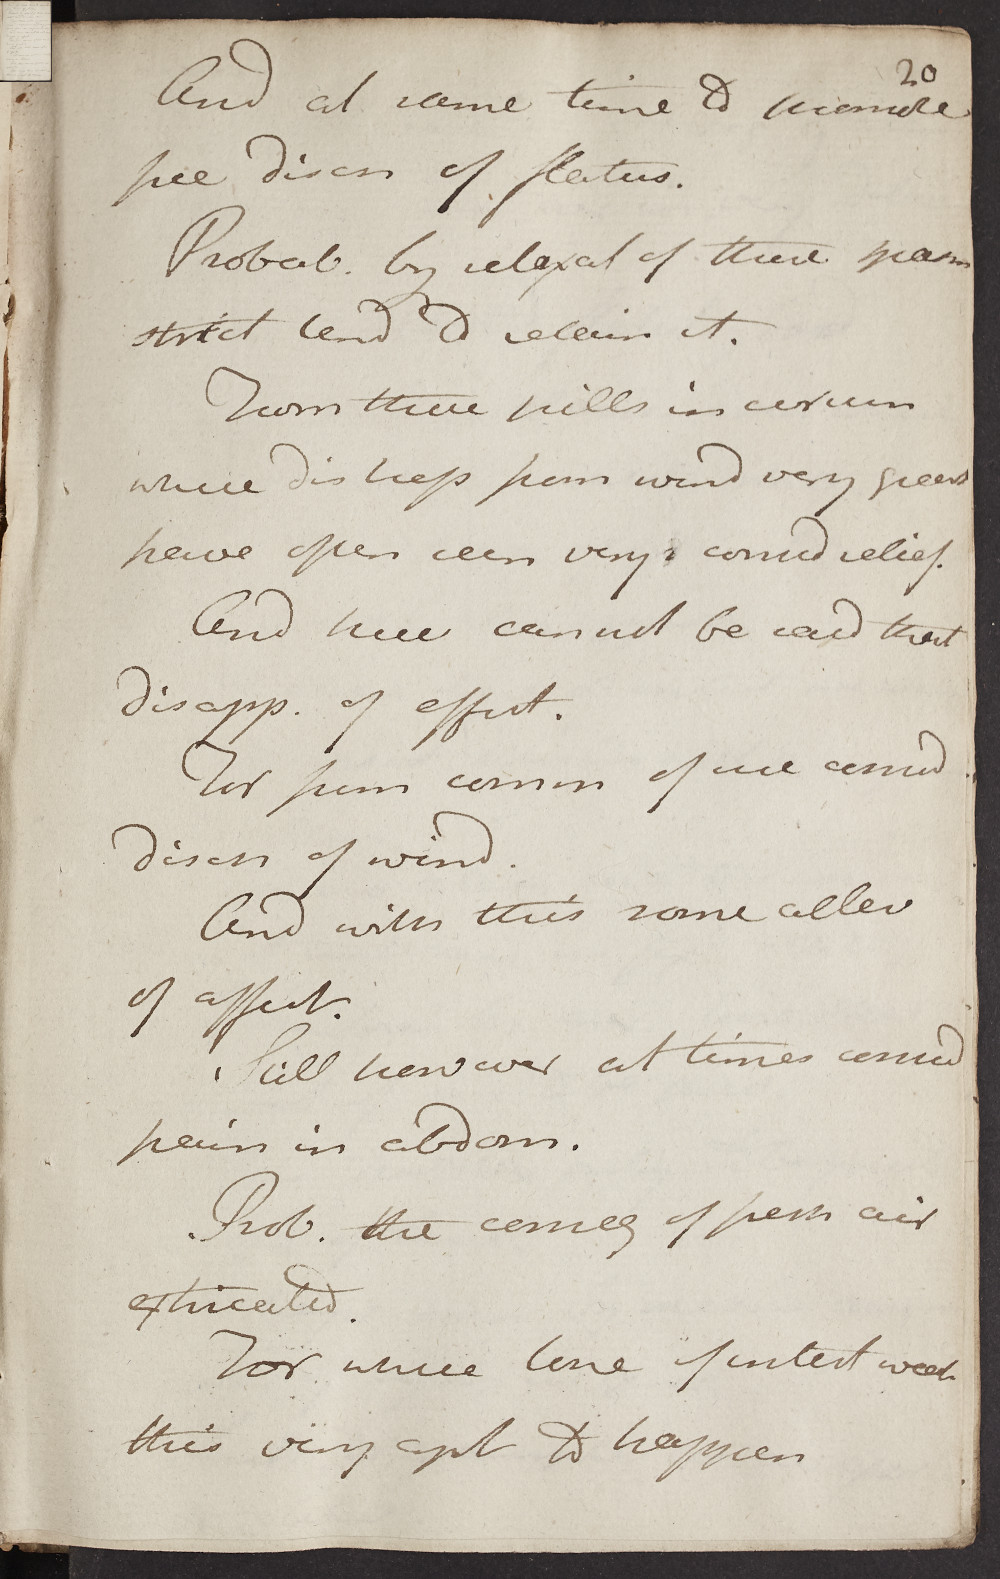 20
And at same time to promote
free disch of flatus.
Probab. by relaxat of those spasm
strict tend to retain it.
From these pills in cases
where distress from wind very great
have often seen very consid relief.
And here cannot be said that
disapp. of effect.
For from comm of use consid
disch of wind.
And with this some allev
of affect.
Still however at times consid
pain in abdom.
Prob. the conseq of fresh air
extricated.
For where tone of intest weak
this very apt to happen